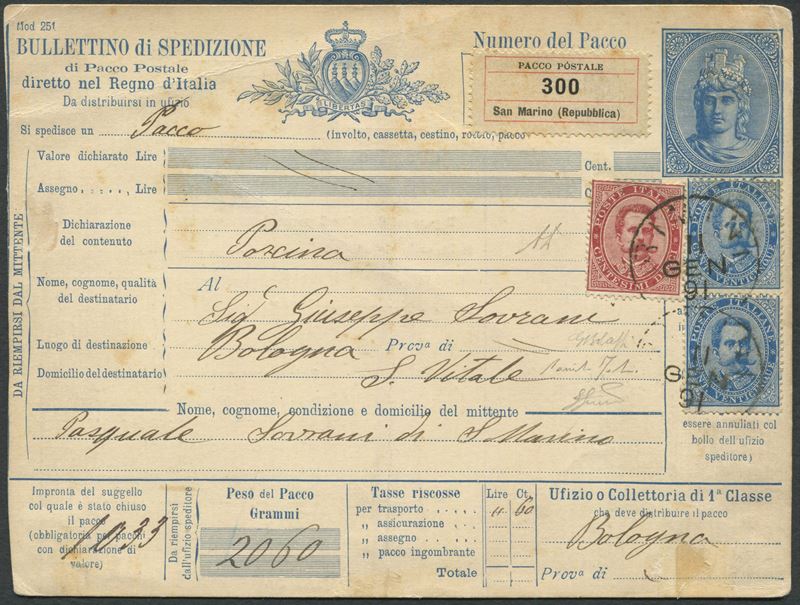 Mod 251
BULLETTINO di SPEDIZIONE
di Pacco Postale
diretto nel Regno d'Italia
Da distribuirsi in ufizio
LIBERTAS
Numero del Pacco
PACCO POSTALE
300
San Marino (Repubblica)
Si spedisce un Pacco (involto, cassetta, cestino, rotolo, pacco
Valore dichiarato Lire Cent.
Assegno . . . . ., Lire C
DA RIEMPIRSI DAL MITTENTE
Dichiarazione
del contenuto
Porcina
POSTE ITALIANE
CENTESIMI
POSTE ITALIANE
CENTESIMI VENTICINQUE
POSTE ITALIANE
CENTESIMI VENTICINQUE
11
GEN
91
11
GEN
91
Nome, cognome, qualità
del destinatario
Al
Sig Giuseppe Sovrani
Luogo di destinazione Bologna Prova di
Domicilio del destinatario S. Vitale
Nome, cognome, condizione e domicilio del mittente
Pasquale Sovrani di S. Marino
essere annullati col
bollo dell'ufizio
speditore)
Impronta del suggello
col quale è stato chiuso
il pacco
(obbligatoria pei pacchi
con dichiarazione di
valore)
1033
Da riempirsi
dall'ufizio speditore
Peso del Pacco
Grammi
2060
Tasse riscosse Lire Ct.
per trasporto . . . . „ 60
„ assicurazione . .
„ assegno . . . . .
„ pacco ingombrante
Totale
Ufizio o Collettoria di 1ª Classe
che deve distribuire il pacco
Bologna
Prova di